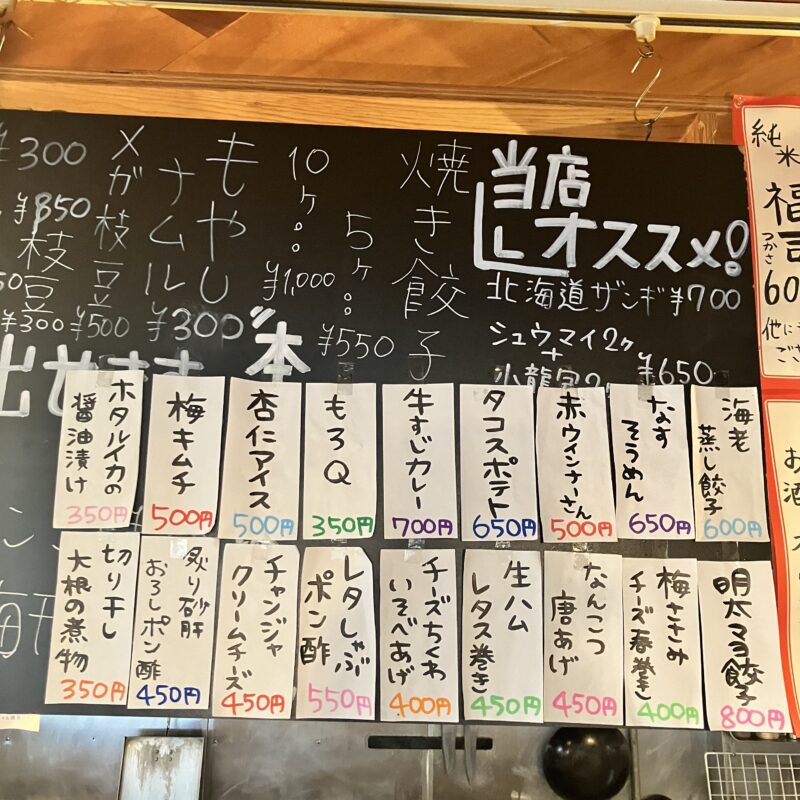 当店
オススメ!
北海道ザンギ¥700
シュウマイ2ヶ
+
¥650
焼き餃子
5ヶ…¥550
10ヶ…¥1,000
もやし
ナムル
¥300
メガ枝豆
¥500
枝豆
¥300
¥850
¥300
海老
蒸し餃子
600円
なす
そうめん
650円
赤ウインナーさん
500円
タコスポテト
650円
牛すじカレー
700円
もろQ
350円
杏仁アイス
500円
梅キムチ
500円
ホタルイカの
醤油漬け
350円
明太マヨ餃子
800円
梅ささみ
チーズ春巻き
400円
なんこつ
唐あげ
450円
生ハム
レタス巻き
450円
チーズちくわ
いそべあげ
400円
レタしゃぶ
ポン酢
550円
チャンジャ
クリームチーズ
450円
炙り砂肝
おろしポン酢
450円
切り干し
大根の煮物
350円
純米
福司
つかさ
60
他に
ござ
お
酒